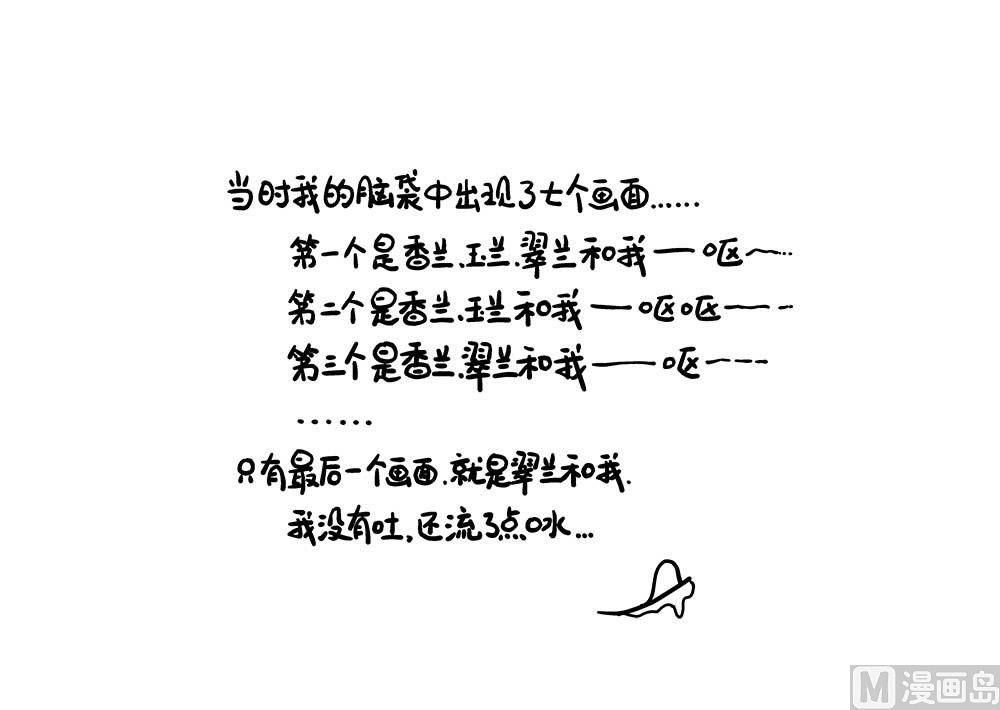 当时我的脑袋中出现了七个画面......
第一个是香兰.玉兰.翠兰和我——呕～...
第二个是香兰.玉兰和我——呕呕——--
第三个是香兰.翠兰和我——呕----
......
只有最后一个画面.就是翠兰和我.
我没有吐,还流了点口水...
M漫画岛